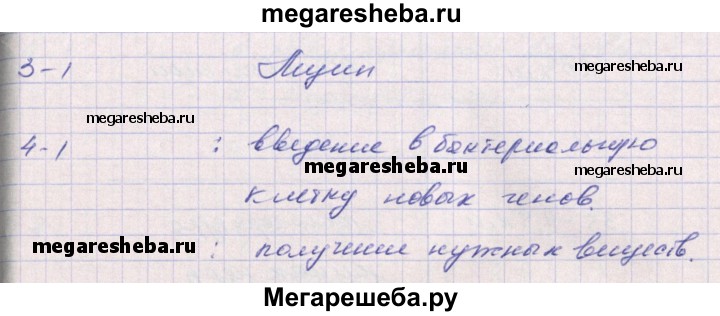 megaresheba.ru
3-1 Лизин megaresheba.ru
megaresheba.ru
4-1 : введение в бактериальную
megaresheba.ru megaresheba.ru
клетку новых генов.
megaresheba.ru : получение нужных веществ.
Мегарешеба.ру